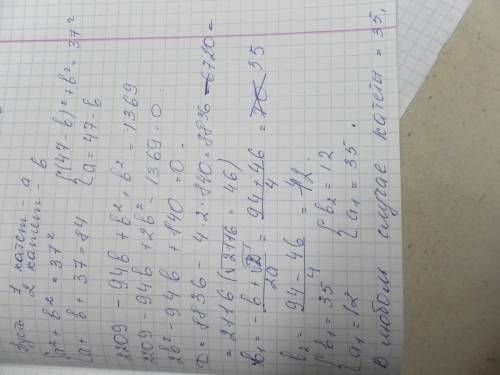 Пусть 1 катет - a
2 катет - b
{a² + b² = 37² {(47 - b)² + b² = 37²
{a + b + 37 = 84 {a = 47 - b
2209 - 94b + b² + b² = 1369
2209 - 94b + 2b² - 1369 = 0.
2b² - 94b + 840 = 0.
D = 8836 - 4·2·840 = 8836 - 6720 =
= 2116 (√2116 = 46)
b₁ = -b + √D / 2a = 94 + 46 / 4 = 35
b₂ = 94 - 46 / 4 = 12
{b₁ = 35 {b₂ = 12
{a₁ = 12 {a₁ = 35.
В любом случае катеты = 35,